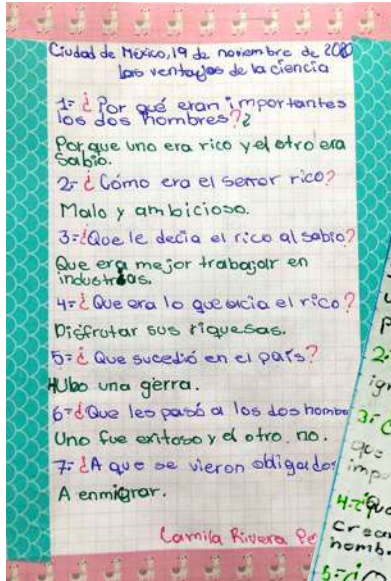 Ciudad de México, 19 de noviembre de 2020
las ventajas de la ciencia
1= ¿Por qué eran importantes
los dos hombres?
Porque uno era rico y el otro era
sabio.
2= ¿Cómo era el señor rico?
Malo y ambicioso.
3=¿Que le decia el rico al sabio?
Que era mejor trabajar en
industrias.
4=¿Que era lo que hacia el rico?
Disfrutar sus riquesas.
5=¿ Que sucedió en el país?
Hubo una gerra.
6=¿Que les pasó a los dos hombr
Uno fue exitoso y el otro no.
7=¿A que se vieron obligados
A enmigrar.
Camila Rivera
2=
3=
que
4=
5=¿